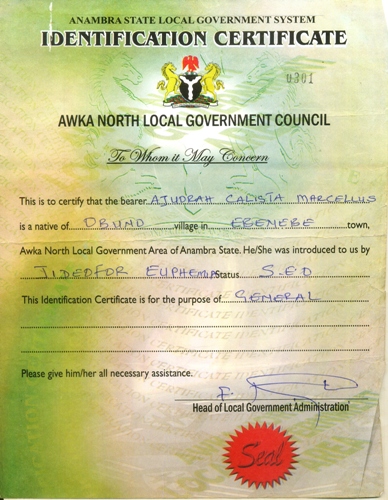 ANAMBRA STATE LOCAL GOVERNMENT SYSTEM
IDENTIFICATION CERTIFICATE
0301
AWKA NORTH LOCAL GOVERNMENT COUNCIL
To Whom it May Concern
This is to certify that the bearer AJUDRAH CALISTA MARCELLUS
is a native of OBUNO village in EBENEBE town,
Awka North Local Government Area of Anambra State. He/She was introduced to us by
JIDEOFOR EUPHEMIA Status S.E.O
This Identification Certificate is for the purpose of GENERAL
Please give him/her all necessary assistance.
Head of Local Government Administration
Seal